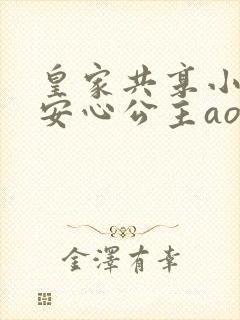 皇家共享小
安心公主ao
金泽有幸